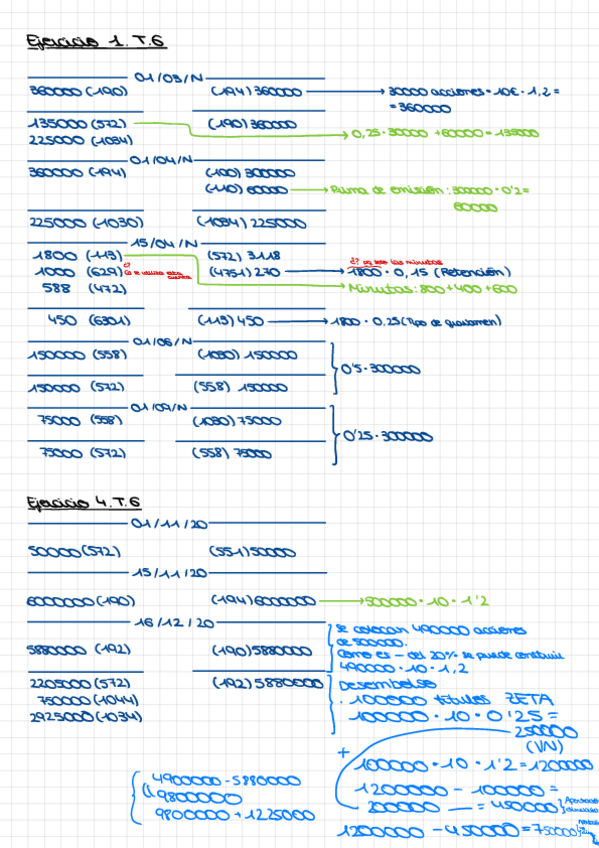 Ejercicio 1. T.6
01/03/N
360000 (190) (194) 360000 → 30000 acciones · 10€ · 1,2 =
= 360000
135000 (572) (190) 360000 → 0,25 · 30000 + 60000 = 135000
225000 (1034)
01/04/N
360000 (194) (100) 300000
(110) 60000 → Prima de emisión: 300000 · 0'2 =
60000
225000 (1030) (1034) 225000
15/04/N
1800 (113) (572) 3118 ¿? los minutos
1000 (629) ¿? (4751) 270 → 1800 · 0,15 (Retención)
588 (472) Minutas: 800 + 400 + 600
450 (6301) (113) 450 → 1800 · 0,25 (Tipo de gravamen)
01/06/N
150000 (558) (1030) 150000
0'5 · 300000
150000 (572) (558) 150000
01/09/N
75000 (558) (1030) 75000
0'25 · 300000
75000 (572) (558) 75000
Ejercicio 4. T.6
01/11/20
50000 (572) (551) 50000
15/11/20
6000000 (190) (194) 6000000 → 500000 · 10 · 1'2
16/12/20
Se colocan 490000 acciones
de 500000.
5880000 (192) (190) 5880000
Como es - del 20% se puede constituir
490000 · 10 · 1,2
2205000 (572) (192) 5880000
750000 (1044)
2925000 (1034)
Desembolso
· 100000 títulos ZETA
100000 · 10 · 0'25 =
250000
(VN)
+
100000 · 10 · 1'2 = 1200000
1200000 - 100000 =
200000 = 450000
1200000 - 450000 = 750000
4900000 - 5880000
9800000
9800000 + 1225000